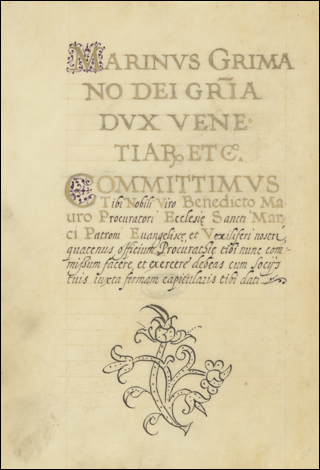 MARINVS GRIMA
NO DEI GR̄IA
DVX VENE-
TIARꝜ ETC.
COMMITTIMVS
Tibi Nobili Viro Benedicto Ma
uro Procuratori Ecclesie Sancti Mar
ci Patroni Euangelisce, et Vexiliferi nostri,
quatenus officium Procuratiæ tibi nunc com-
missum facere, et exercere debeas cum Socijs
tuis iuxta formam capitularis tibi dati